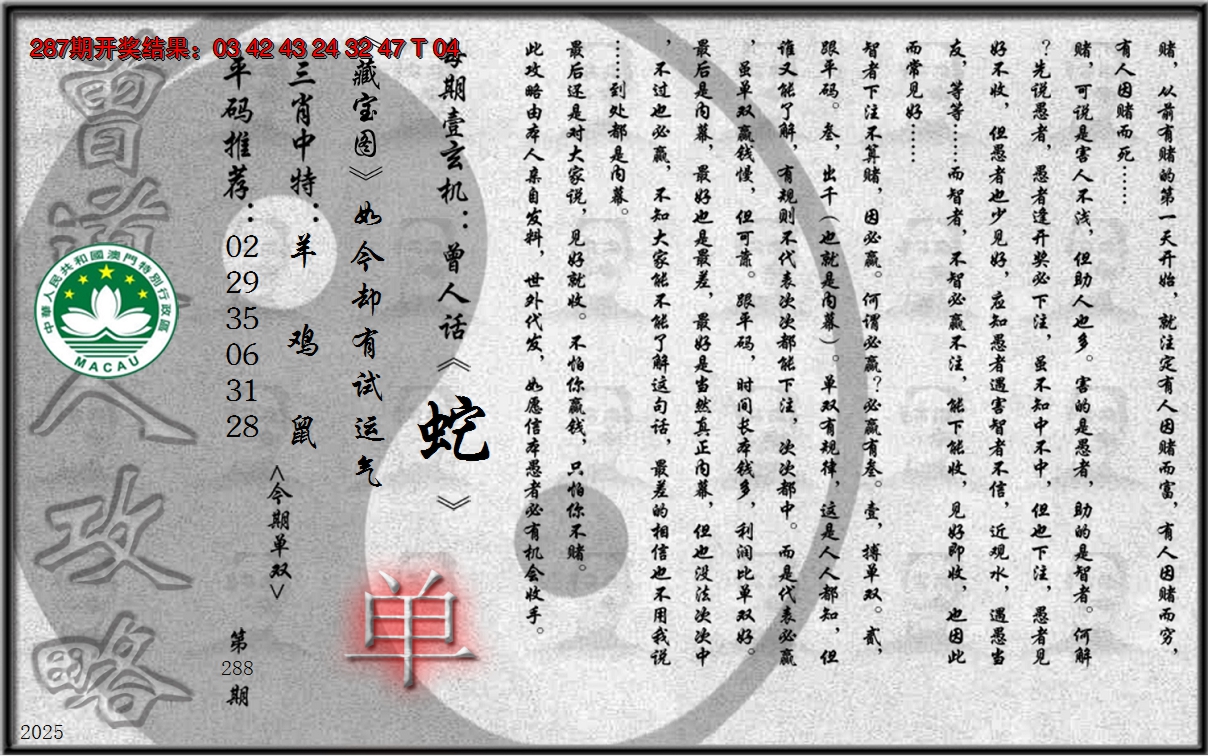 287期开奖结果：03 42 43 24 32 47 T 04
赌，从前有赌的第一天开始，就注定有人因赌而富，有人因赌而穷，
有人因赌而死……
赌，可说是害人不浅，但助人也多。害的是愚者，助的是智者。何解
？先说愚者，愚者逢开奖必下注，虽不知中不中，但也下注，愚者见
好不收，但愚者也少见好，应知愚者遇害智者不信，近观水，遇愚当
友，等等……而智者，不智必赢不注，能下能收，见好即收，也因此
而常见好……
智者下注不算赌，因必赢。何谓必赢？必赢有叁。壹，搏单双。贰，
跟平码。叁，出千（也就是内幕）。单双有规律，这是人人都知，但
谁又能了解，有规则不代表次次都能下注，次次都中。而是代表必赢
，虽单双赢钱慢，但可靠。跟平码，时间长本钱多，利润比单双好。
最后是内幕，最好也是最差，最好是当然真正内幕，但也没法次次中
，不过也必赢，不知大家能不能了解这句话，最差的相信也不用我说
……到处都是内幕。
最后还是对大家说，见好就收。不怕你赢钱，只怕你不赌。
此攻略由本人亲自发料，世外代发，如愿信本愚者必有机会收手。
每期壹玄机：曾人话《蛇》
《藏宝图》如今却有试运气
单
三肖中特：羊 鸡 鼠
<今期单双>
平码推荐：
02
29
35
06
31
28
第
288
期
曾道人攻略
中華人民共和國澳門特別行政區
MACAU
2025